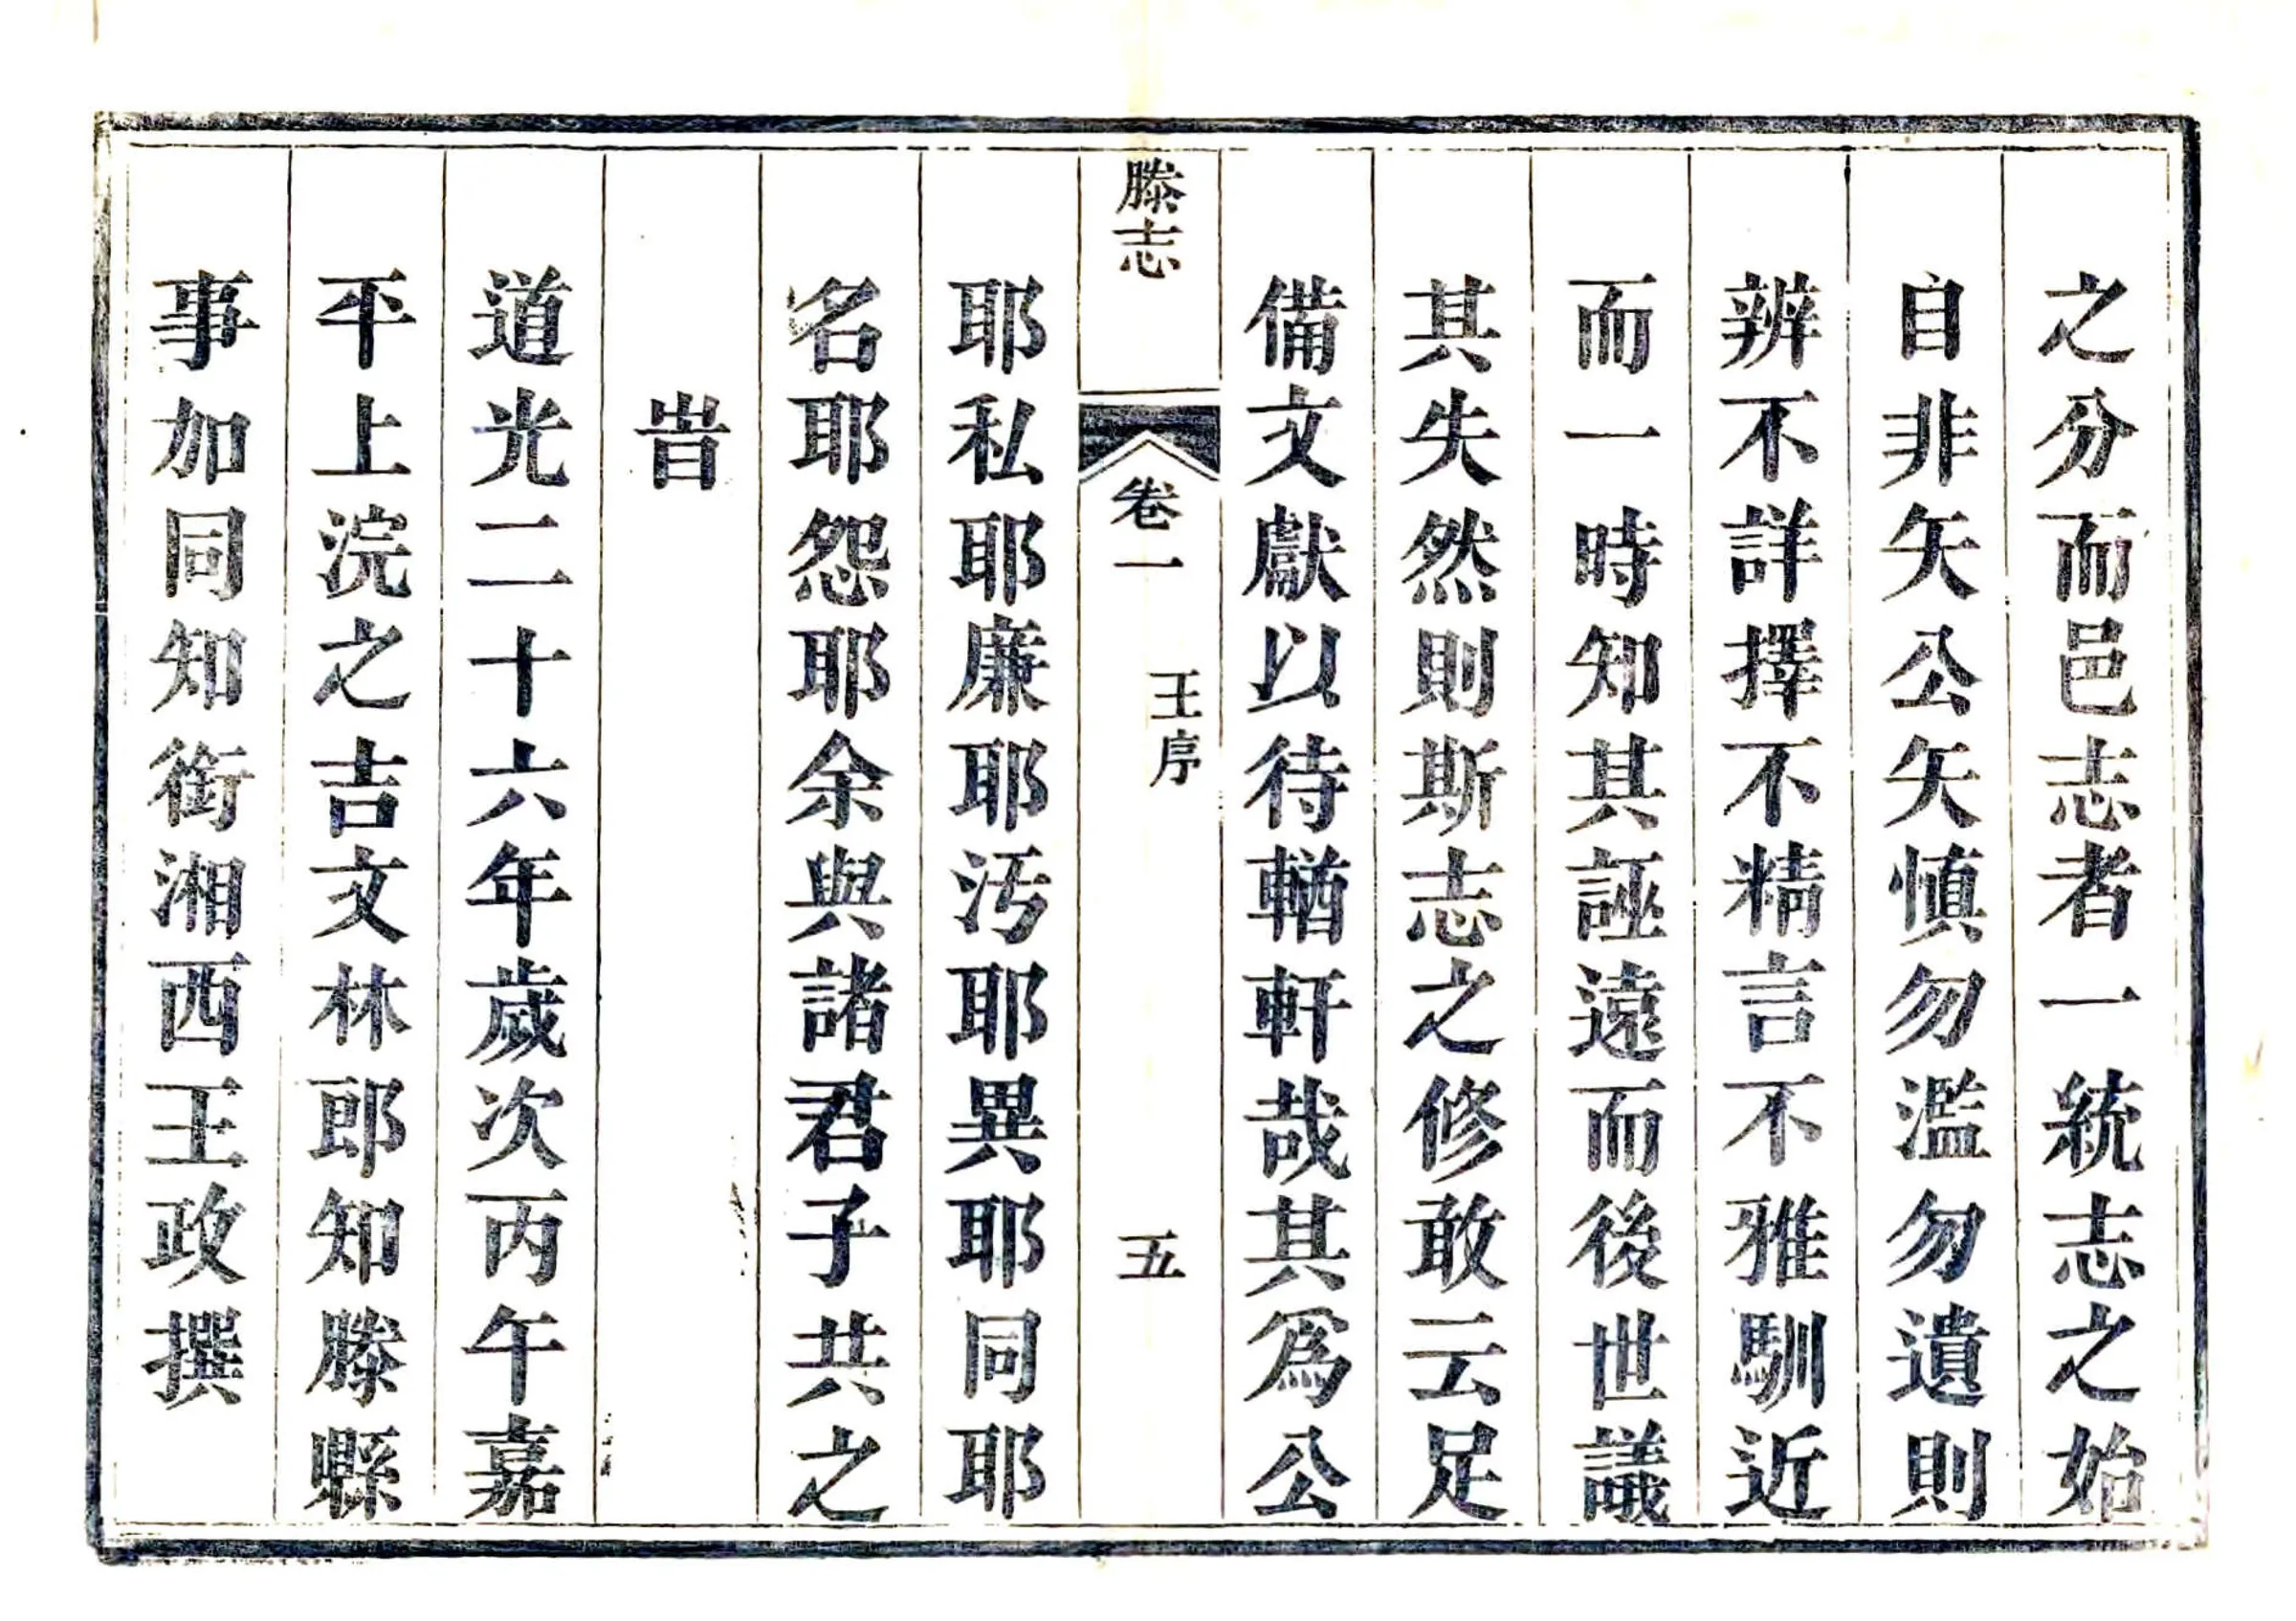 之分而邑志者一統志之始
自非矢公矢慎勿濫勿遺則
辨不詳擇不精言不雅馴近
而一時知其誣遠而後世議
其失然則斯志之修敢云足
備文獻以待輶軒哉其為公
滕志
卷一
王序
五
耶私耶廉耶汚耶異耶同耶
名耶怨耶余與諸君子共之
旹
道光二十六年歲次丙午嘉
平上浣之吉文林郎知滕縣
事加同知銜湘西王政撰